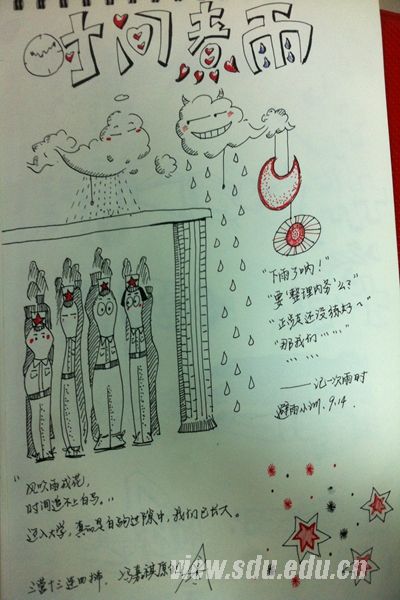 时间煮雨
"下雨了哟！"
"要整理内务么？"
"正步还没练好～"
"那我们……"
… …
——记一次雨时
避雨小洲. 9.14.
"风吹雨成花，
时间追不上白马。"
迈入大学，真的是白驹过隙中，我们已长大。
三营十三连四排 冯嘉祺原创
view.sdu.edu.cn